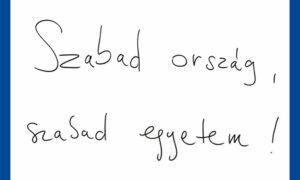 Szabad ország,
szabad egyetem!